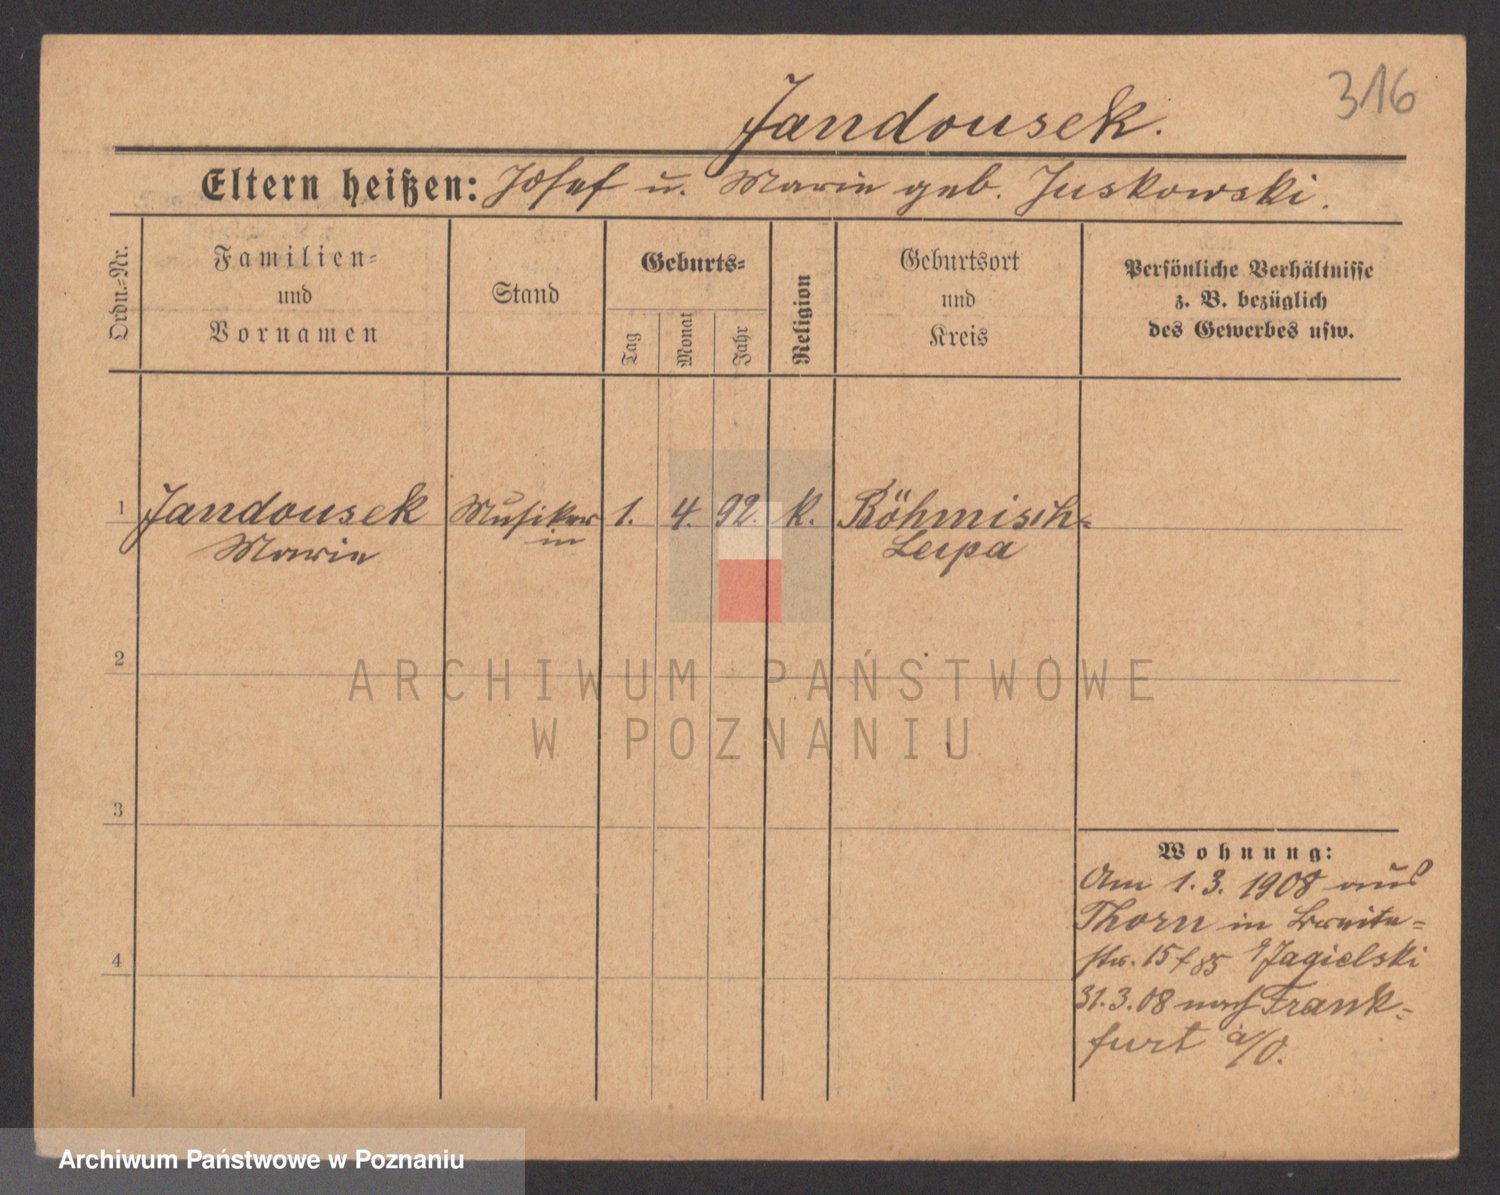 316
Jandousek.
Eltern heißen: Josef u. Marie geb. Juskowski.
Ordn.-Nr.
Familien-
und
Vornamen
Stand
Geburts-
Tag
Monat
Jahr
Religion
Geburtsort
und
Kreis
Persönliche Verhältnisse
z. B. bezüglich
des Gewerbes usw.
1 Jandousek Musiker 1. 4. 92. k. Böhmisch-
Marie in Leipa
2
ARCHIWUM PAŃSTWOWE
W POZNANIU
3
Wohnung:
Am 1.3. 1908 aus
Thorn in Breite-
str. 15 Jagielski
4
31.3.08 nach Frank-
furt a/O.
Archiwum Państwowe w Poznaniu